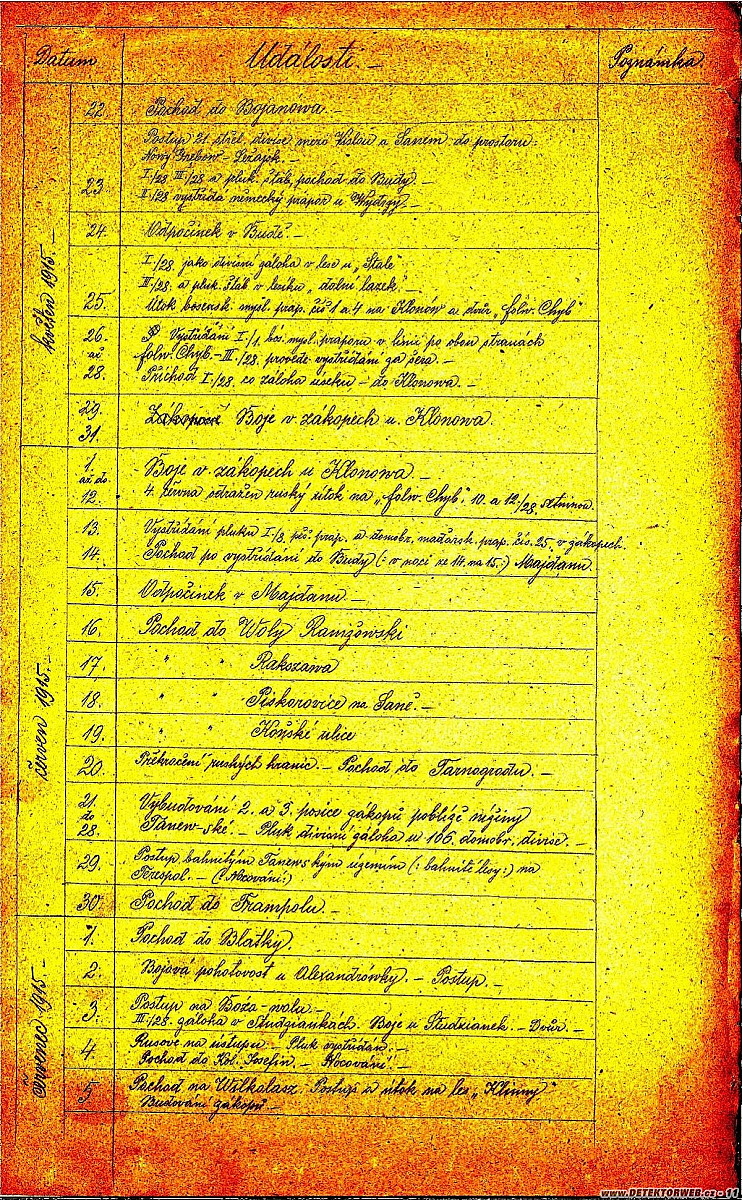 Datum Události. Poznámka.
květen 1915.
22. Pochod do Bojanowa.
Postup 21. střel. divise mezi Vislou a Sanem do prostoru
Nowy Grebow - Ležajsk. —
23. I./28. III./28. a pluk. štáb, pochod do Budy. —
II./28 vystřídá německý prapor u Wydrzy. —
24. Odpočinek v Budě. —
I./28. jako divisní záloha v lese u „Stale"
III./28. a pluk. štáb v lesíku „dolní lazek. —
25. Útok bosensk. mysl. prap. čís 1 a 4 na Klonow a dvůr „folw. Chyb"
26. Vystřídání I./1. bos. mysl. praporu v linii po obou stranách
až folw. Chyb. - III./28. provede vystřídání za šera. —
28. Příchod I./28. co záloha úseku - do Klonowa. —
29.
31. Boje v zákopech u Klonowa.
červen 1915. —
1. Boje v zákopech u Klonowa. —
až do
12. 4. června odražen ruský útok na „folw. Chyb". 10. a 12./28. setninou.
13. Vystřídání pluku I./8. pěš. prap. a domobr. maďarsk. prap. čís. 25. v zákopech.
14. Pochod po vystřídání do Budy (: v noci ze 14. na 15. :) Majdanu.
15. Odpočinek v Majdanu. —
16. Pochod do Woly Ranižowski
17. " " Rakszawa
18. " " Piskorovice na Saně. —
19. " " Koňské ulice
20. Překročení ruských hranic. — Pochod do Tarnogrodu. —
21. Vybudování 2. a 3. posice zákopů poblíže nížiny
do
28. Tanew-ské. — Pluk divisní záloha u 106. domobr. divise. —
29. Postup bahnitým Tanewským územím (: bahnité lesy :) na
Terespol. — (: Nocování :)
30. Pochod do Frampolu. —
červenec 1915. —
1. Pochod do Blatky.
2. Bojová pohotovost u Alexandrówky. — Postup. —
3. Postup na Boža-wolu. —
III./28. záloha v Studziankách. Boje u Studzianek. — Dvůr. —
4. Rusové na ústupu. — Pluk vystřídán. —
Pochod do Kol. Josefin. — Nocování. —
5. Pochod na Wilkolasz. Postup a útok na les „Klinny"
Budování zákopů —
www.DETEKTORWEB.cz • 11